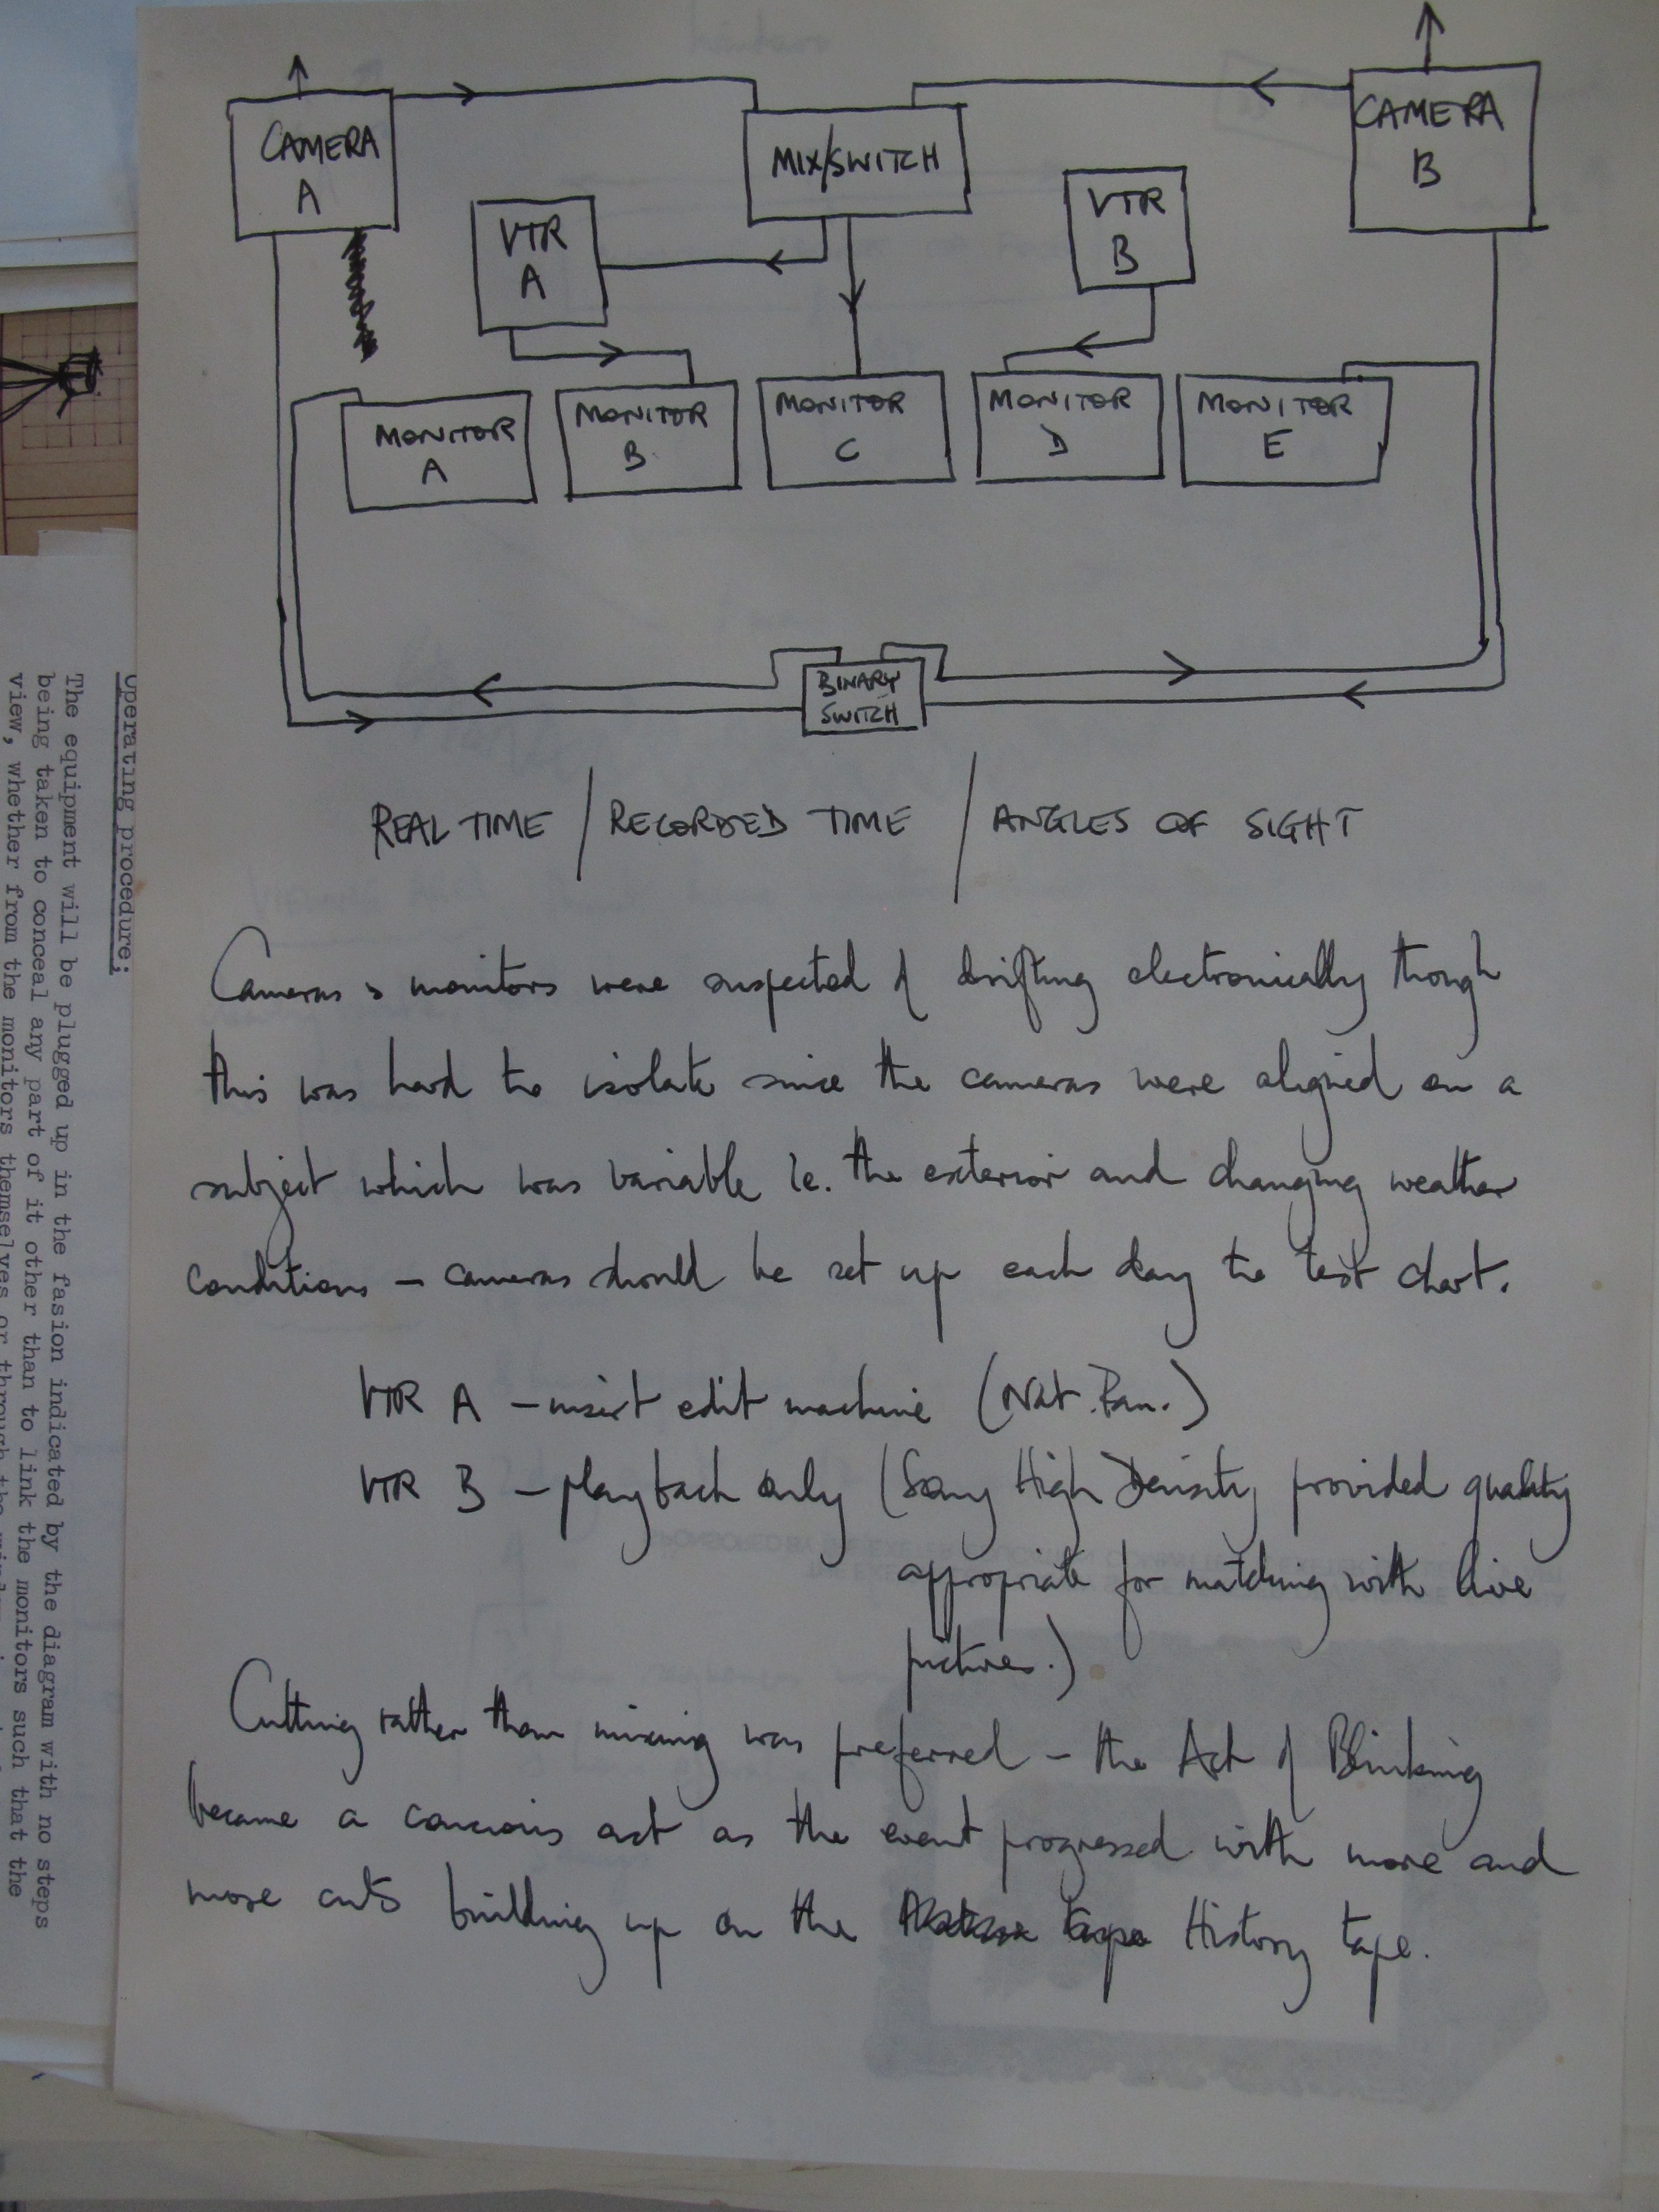 CAMERA
A
MIX/SWITCH
CAMERA
B
VTR
A
VTR
B
MONITOR
A
MONITOR
B
MONITOR
C
MONITOR
D
MONITOR
E
BINARY
SWITCH
REAL TIME / RECORDED TIME / ANGLES OF SIGHT
Cameras & monitors were suspected of drifting electronically though
this was hard to isolate since the cameras were aligned on a
subject which was variable ie. the exterior and changing weather
conditions – cameras should be set up each day to test chart.
VTR A – insert edit machine (Nat. Pan.)
VTR B – playback only (Sony High Density provided quality
appropriate for matching with live
pictures.)
Cutting rather than mixing was preferred – the Act of Blinking
became a concious act as the event progressed with more and
more cuts building up on the History tape.
Operating procedure;
The equipment will be plugged up in the fasion indicated by the diagram with no steps
being taken to conceal any part of it other than to link the monitors such that the
view, whether from the monitors themselves or through the